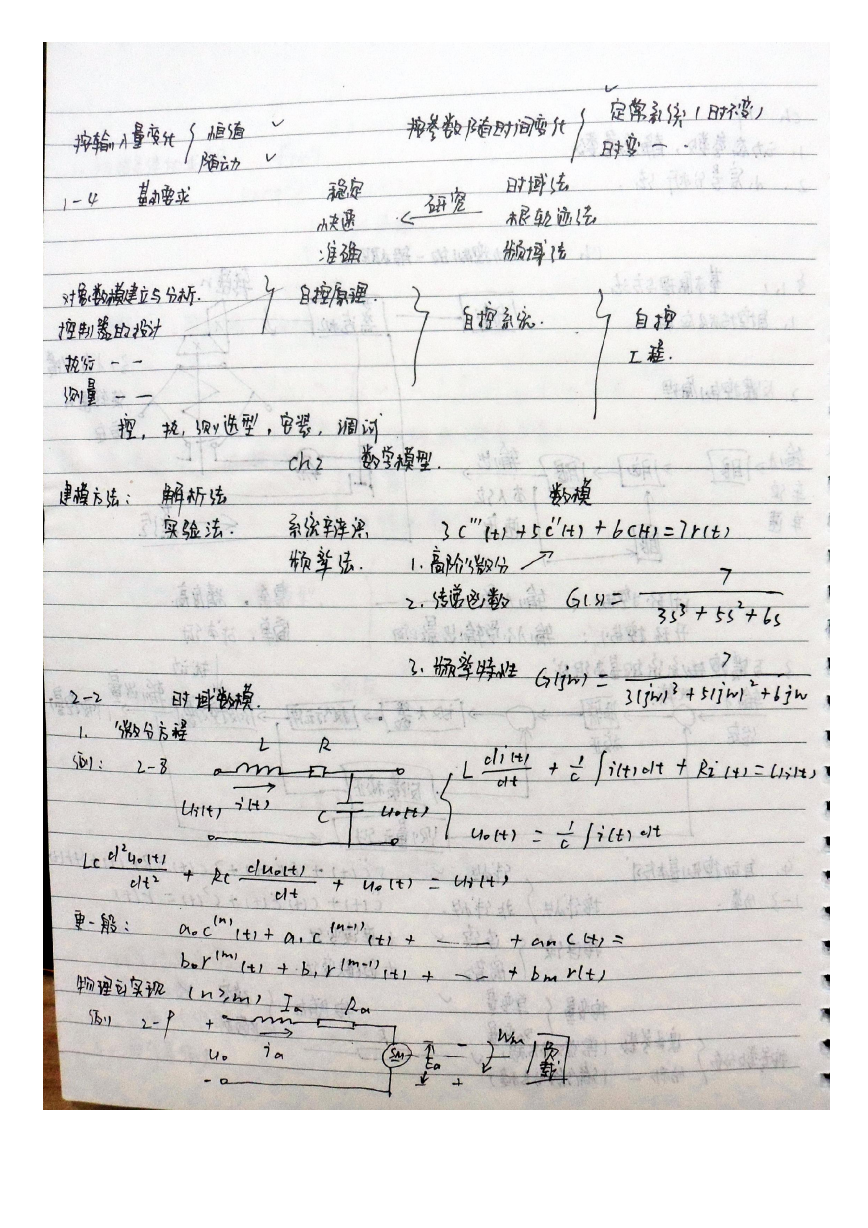 按输入量变化 { 恒值 ✓ 随动 ✓
按参数随时间变化 { 定常系统(时不变) ✓ 时变 — ·
1-4 基本要求 稳定 快速 准确 ← 研究 时域法 根轨迹法 频域法
对象数模建立与分析. } 自控原理. } 自控系统. } 自控工程.
控制器的设计
执行 - -
测量 - -
控, 执, 测 选型, 安装, 调试
ch2 数学模型.
建模方法: 解析法 数模
实验法. 系统辛识 3c'''(t)+5c''(t)+6c(t)=7r(t)
频率法. 1. 高阶微分
2. 传递函数 G(s)= 7/(3s³+5s²+6s)
3. 频率特性 G(jw)= 7/(3(jw)³+5(jw)²+6jw)
2-2 时域数模.
1. 微分方程
例: 2-8 L R
ui(t) i(t) C uo(t)
L di(t)/dt + 1/c ∫i(t)dt + Ri(t)=ui(t)
uo(t) = 1/c ∫i(t)dt
Lc d²uo(t)/dt² + Rc duo(t)/dt + uo(t) = ui(t)
更一般: a₀c⁽ⁿ⁾(t)+a₁c⁽ⁿ⁻¹⁾(t)+ -- +aₙc(t)=
b₀r⁽ᵐ⁾(t)+b₁r⁽ᵐ⁻¹⁾(t)+ -- +bₘr(t)
物理可实现 (n≥m)
例 2-9 + Ia Ra
uo ia SM Ea - + Wm 负载
-